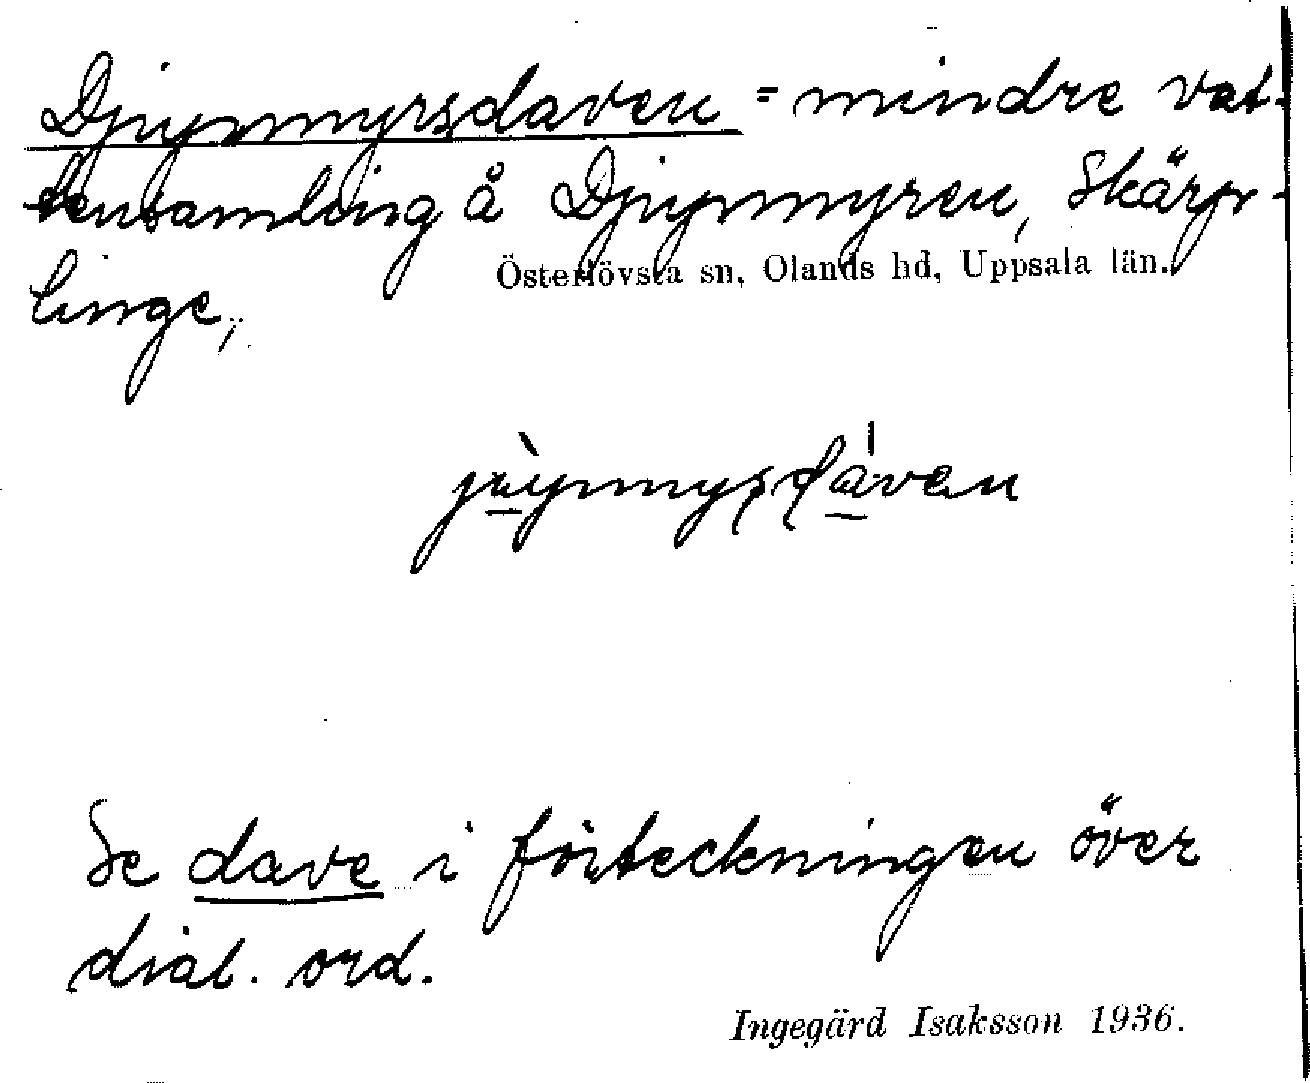 Djupmyrsdaven = mindre vat-
tensamling å Djupmyren, Skärp-
Österlövsta sn, Olands hd, Uppsala län.
linge,
Se dave i förteckningen över
dial. ord.
Ingegärd Isaksson 1936.